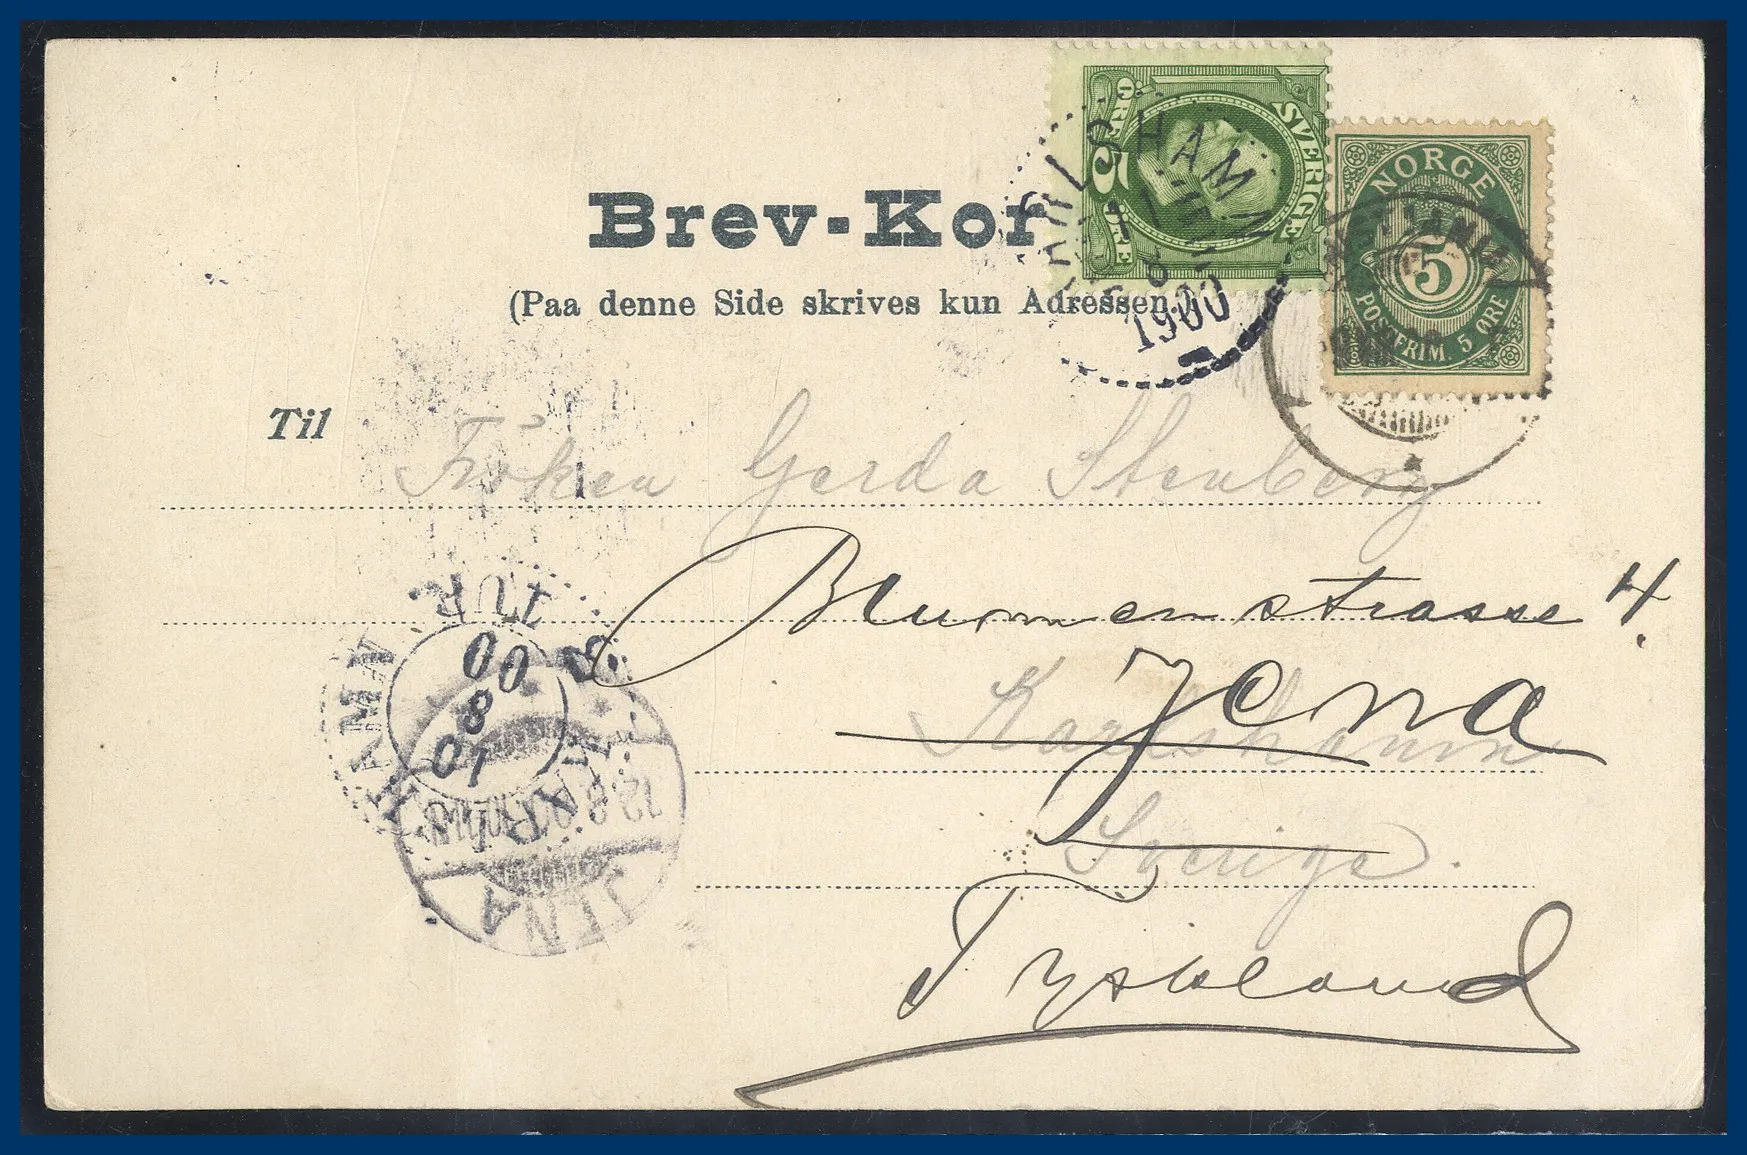 Brev-Kor
(Paa denne Side skrives kun Adressen.)
SVERIGE
5
ÖRE
NORGE
5
POSTFRIM. 5 ØRE
KARLSHAMN
8
1900
Til
Fröken Gerda Stenberg
Blumenstrasse 4.
Jena
Karlshamn
Sverige.
Tyskland
TUR.
00
8
10
JENA